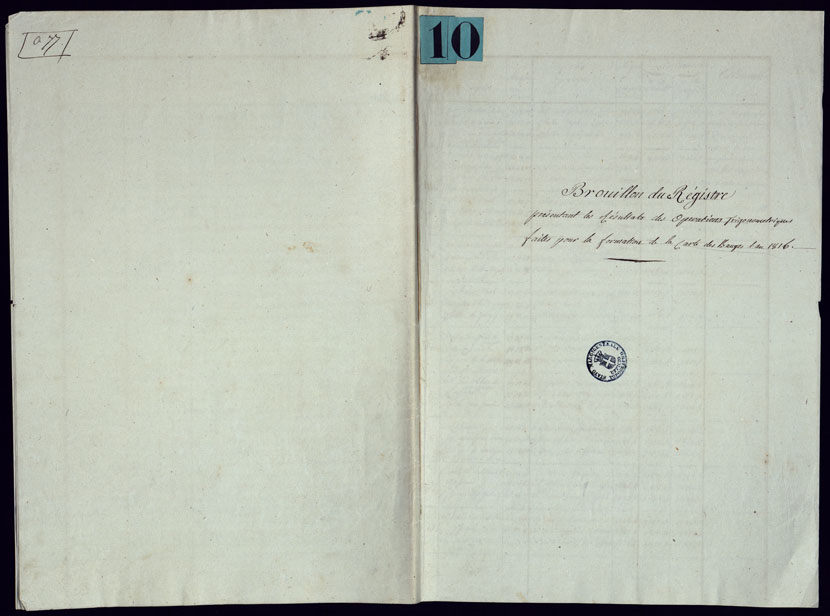 077
10
Brouillon du Régistre
présentant les Résultats des Opérations Trigonometriques
faites pour la formation de la Carte des Bauges l'an 1816.